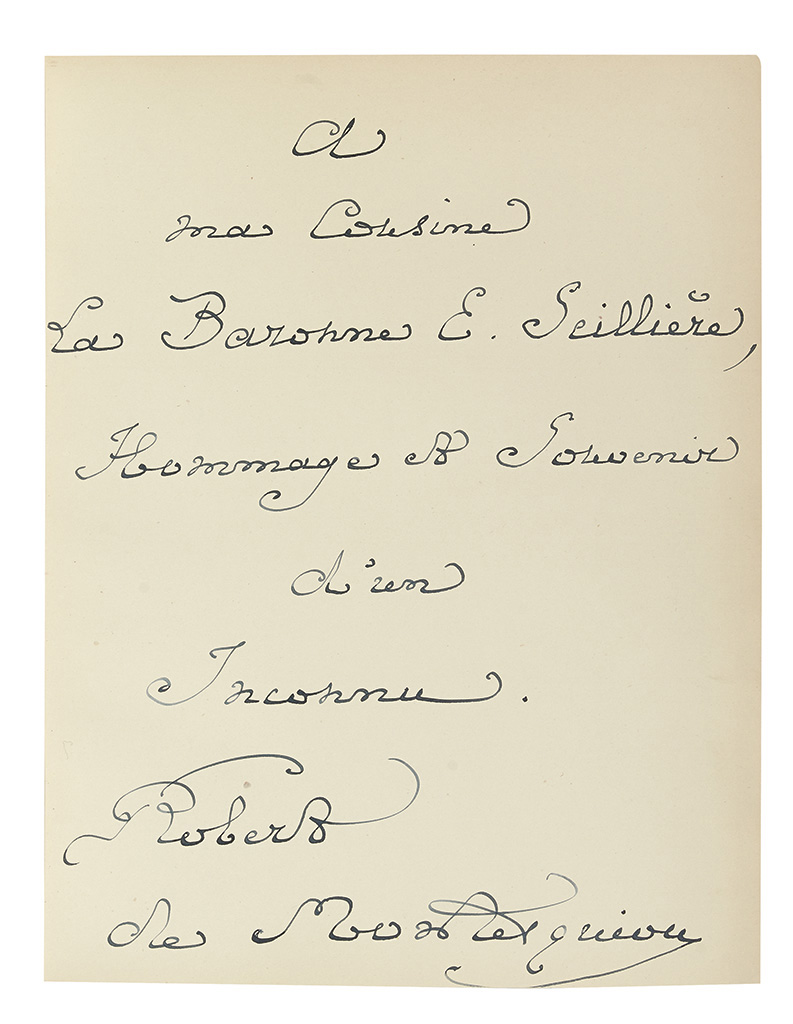 A
ma Cousine
La Baronne E. Seillière,
Hommage et Souvenir
d'un
Inconnu.
Robert
de Montesquiou